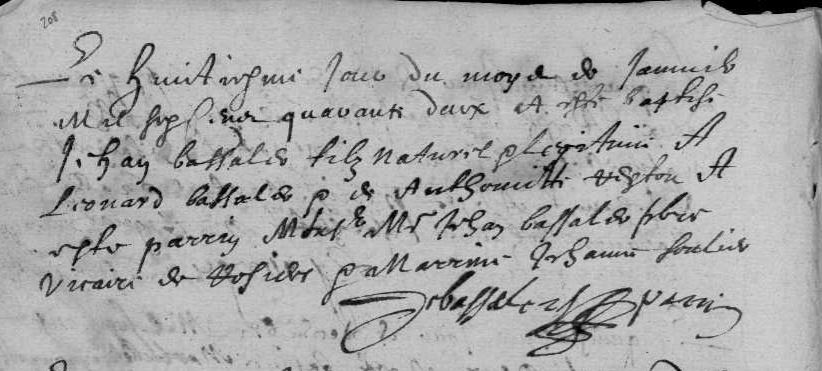 208
Le huitiesme jour du moys de Janvier
Mil six cens quarante deux A este baptise
Jehan bassaler filz naturel & legitime A
Leonard bassaler & de Anthoinette A
este parrin Monsr Me Jehan bassaler pbre
vicaire de & Marrine Jehanne soulier
Jebassaler parrin